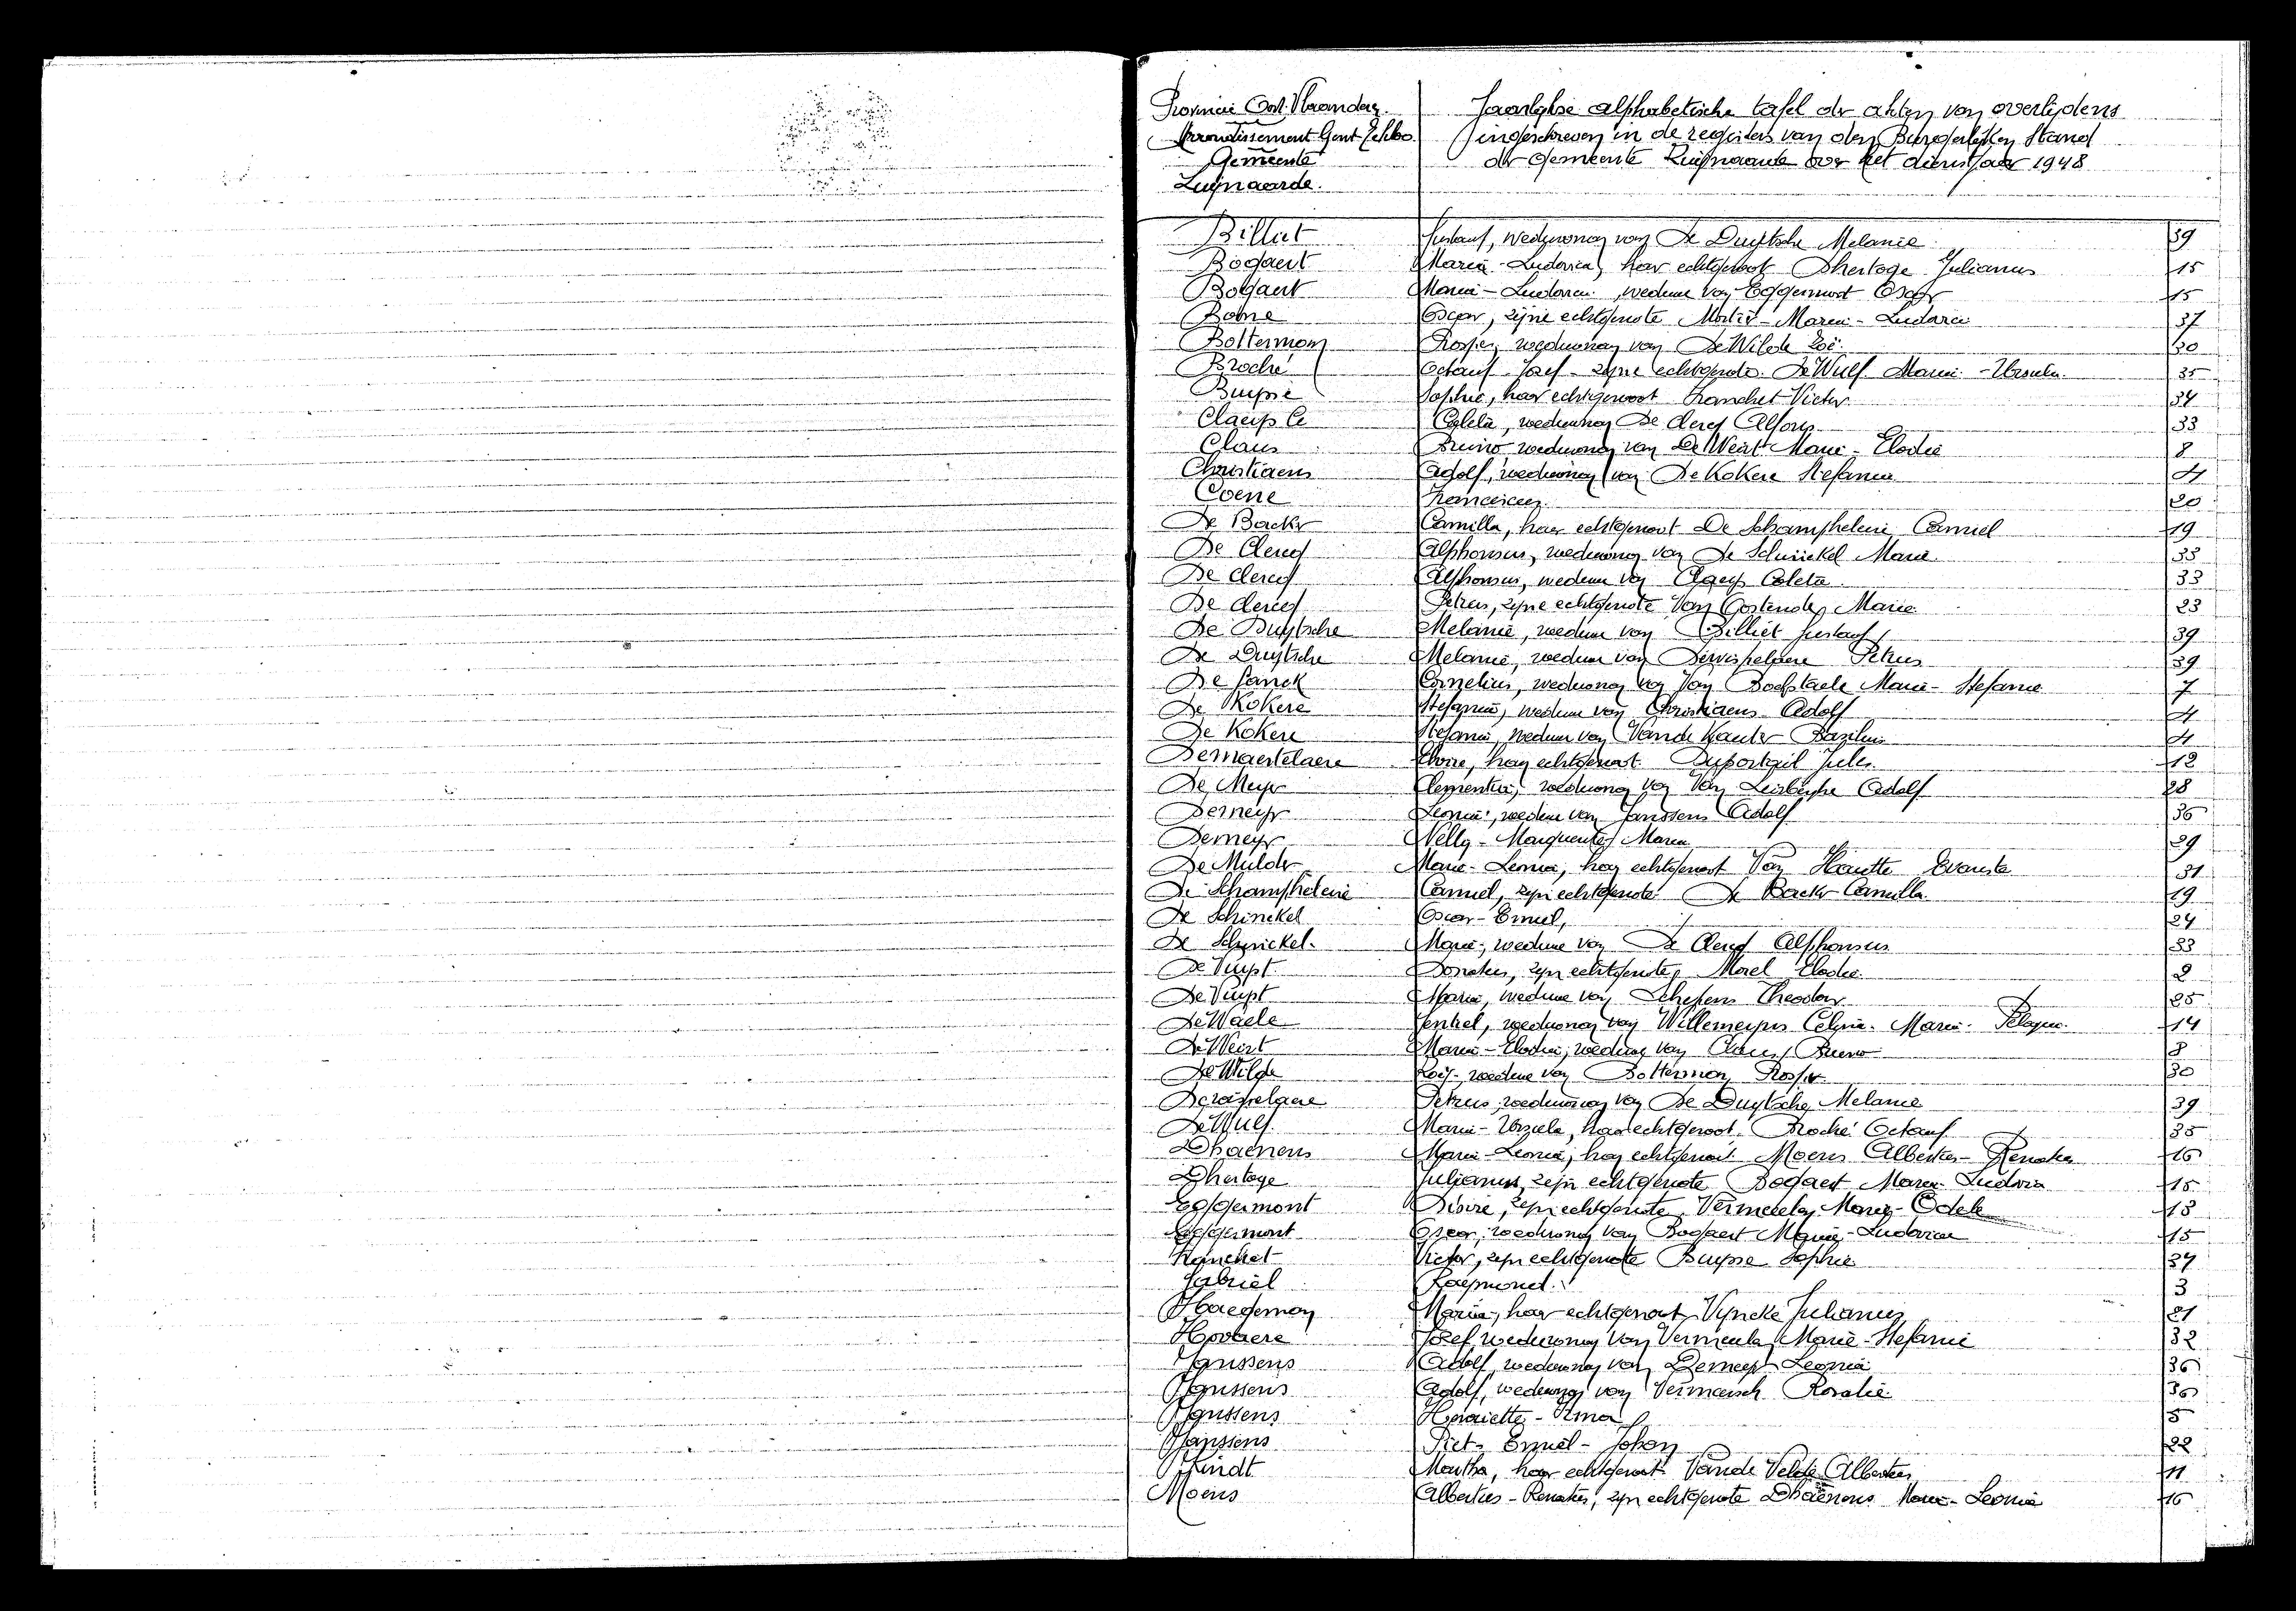 Provincie Oost-Vlaanderen
Arrondissement Gent Eekloo
Gemeente
Zwijnaarde.
Jaarlijkse alphabetische tafel der akten van overlijdens
ingeschreven in de registers van den Burgerlijken Stand
der gemeente Zwijnaarde over het dienstjaar 1948
Billiet Gustaaf, weduwnaar van De Duytsche Melanie 39
Bogaert Maria-Ludovica, haar echtgenoot Dhertoge Julianus 15
Bogaert Maria-Ludovica, weduwe van Eggermont Oscar 15
Bohne Oscar, zijne echtgenote Marie-Ludovica 37
Bolterman weduwnaar van De Wilde Zoë 30
Broché Octaaf Jozef zijne echtgenote De Wulf Maria-Ursula 35
Buysse Sophie, haar echtgenoot Franchet Victor 34
Claeys Coleta, weduwe De Clercq Alfons 33
Claus Bruno weduwnaar van De Weirt Marie-Elodie 8
Christiaens Adolf, weduwnaar van De Kokere Stefanie 4
Coene Franciscus 20
De Backer Camilla, haar echtgenoot De Schamphelaire Camiel 19
De Clercq Alphonsus, weduwnaar van De Schinckel Maria 33
De Clercq Alphonsus, weduwe van Claeys Coleta 33
De Clercq Petrus, zijne echtgenote Van Oostende Marie 23
De Duytsche Melanie, weduwe van Billiet Gustaaf 39
De Duytsche Melanie, weduwe van Dewispelaere Petrus 39
De Janck Cornelius, weduwnaar van Van Bocxstaele Marie-Stefanie 7
De Kokere Stefanie, weduwe van Christiaens Adolf 4
De Kokere Stefanie, weduwe van Vande Kauter Bazilius 4
Demaertelaere Elvire, haar echtgenoot Duportail Jules 12
De Meyer Clementia, weduwnaar van Van Adolf 28
Demeyer Leonie, weduwe van Janssens Adolf 36
Demeyer Nelly-Marguerite Maria 29
De Mulder Marie-Leonie, haar echtgenoot Van Hautte Evariste 31
De Schamphelaire Camiel, zijn echtgenote De Backer Camilla 19
De Schinckel Oscar-Emiel, 24
De Schinckel Maria, weduwe van De Clercq Alphonsus 33
De Vuyst Donatus, zijn echtgenote, Morel Elodie 2
De Vuyst Maria, weduwe van Schepens Theodoor 25
De Waele weduwnaar van Willemeyns Celina-Maria-Pelagie 14
De Weirt Maria-Elodia, weduwe van Claus Bruno 8
De Wilde Zoë, weduwe van Bolterman 30
Dewispelaere Petrus, weduwnaar van De Duytsche Melanie 39
De Wulf Maria-Ursula, haar echtgenoot Broché Octaaf 35
Dhaenens Maria-Leonie, haar echtgenoot Moens Albertus-Renatus 16
Dhertoge Julianus, zijn echtgenote Bogaert Maria-Ludovica 15
Eggermont Désiré, zijn echtgenote Vermeulen Maria-Odele 13
Eggermont Oscar, weduwnaar van Bogaert Maria-Ludovica 15
Franchet Victor, zijn echtgenote Buysse Sophie 34
Gabriël Raymond. 3
Haegeman Maria, haar echtgenoot Vyncke Julianus 21
Hovaere Jozef, weduwnaar van Vermeulen Marie-Stefanie 32
Janssens Adolf, weduwnaar van Demeyer Leonie 36
Janssens Adolf, weduwnaar van Vermeersch Rosalie 36
Janssens Henriette-Irma 5
Janssens Piet-Emiel-Johan 22
Lindt Martha, haar echtgenoot Vande Velde Albertus 11
Moens Albertus-Renatus, zijn echtgenote Dhaenens Marie-Leonie 16